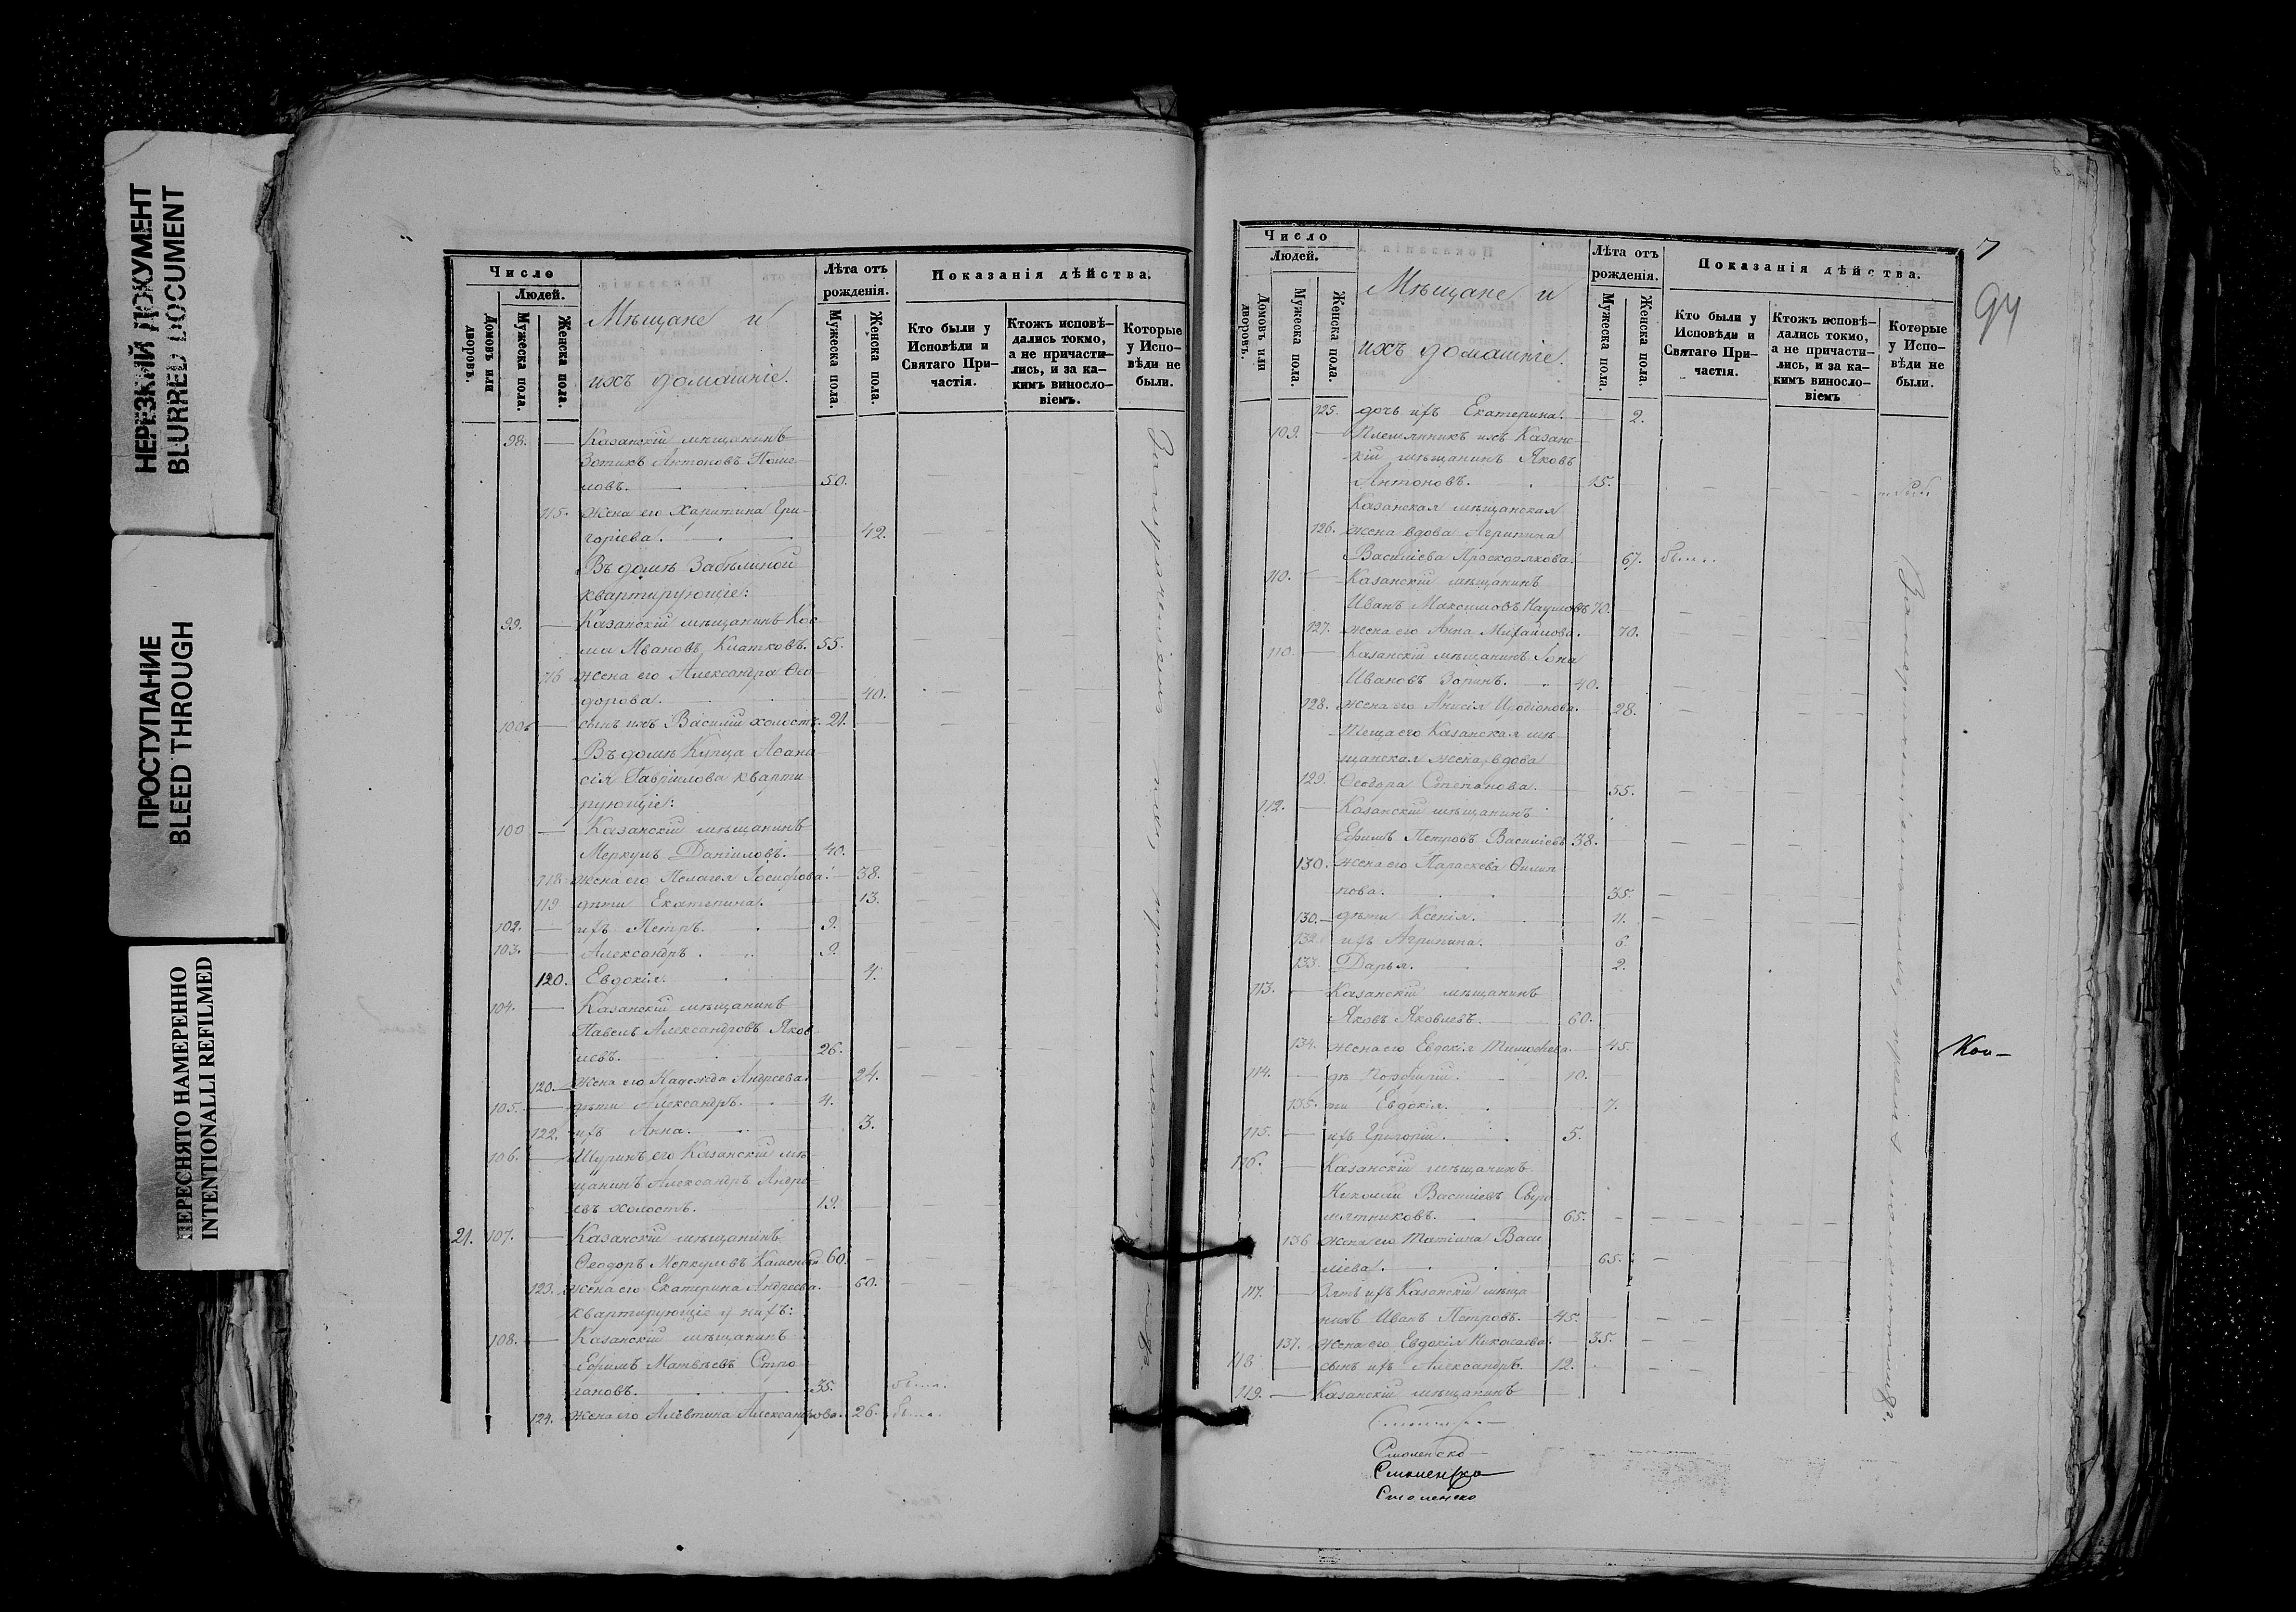 НЕРЕЗКИЙ ДОКУМЕНТ
BLURRED DOCUMENT
ПРОСТУПАНИЕ
BLEED THROUGH
ПЕРЕСНЯТО НАМЕРЕННО
INTENTIONALLI REFILMED
Число
Людей.
Домовъ или дворовъ.
Мужеска пола.
Женска пола.
Мѣщане и
ихъ домашніе.
Лѣта отъ рожденія.
Мужеска пола.
Женска пола.
Показанія дѣйства.
Кто были у Исповѣди и Святаго При-частія.
Ктожъ исповѣ-дались токмо, а не причасти-лись, и за ка-кимъ виносло-віемъ.
Которые у Испо-вѣди не были.
98. — Казанскій мѣщанинъ
Зотикъ Антоновъ
ловъ. 50.
115. Жена его Харитина Гри-
горіева. 42.
Въ домѣ Забѣлиной
квартирующіе:
99. — Казанскій мѣщанинъ Кос-
ма Ивановъ Киятковъ. 55.
116 жена его Александра Ѳео-
дорова. 40.
100 — сынъ ихъ Василій холостъ. 21.
Въ домѣ Купца Аѳана-
сія Гавріилова кварти-
рующіе:
100 — Казанскій мѣщанинъ
Меркулъ Даніиловъ. 40.
118 жена его Пелагея Іосифова. 38.
119 дѣти Екатерина. 13.
102. — ихъ Петръ. 9.
103. — Александръ. 9.
120. Евдокія. 4.
104. — Казанскій мѣщанинъ
Павелъ Александровъ Яков-
левъ. 26.
120. — Жена его Надежда Андреева. 24.
105. — дѣти Александръ. 4.
122. ихъ Анна. 3.
106. — Шуринъ его Казанскій мѣ-
щанинъ Александръ Андре-
евъ холостъ. 19.
21. 107. — Казанскій мѣщанинъ
Ѳеодоръ Меркуловъ 60.
123. Жена его Екатерина Андреева. 60.
квартирующіе у нихъ:
108. — Казанскій мѣщанинъ
Ефимъ Матвѣевъ Стро-
гановъ. 35.
124. Жена его Алевтина Александрова. 26.
7
94
Число
Людей.
Домовъ или дворовъ.
Мужеска пола.
Женска пола.
Мѣщане и
ихъ домашніе.
Лѣта отъ рожденія.
Мужеска пола.
Женска пола.
Показанія дѣйства.
Кто были у Исповѣди и Святаго При-частія.
Ктожъ исповѣ-дались токмо, а не причасти-лись, и за ка-кимъ виносло-віемъ
Которые у Испо-вѣди не были.
125. дочь ихъ Екатерина. 2.
109. — Племянникъ ихъ Казанс-
кій мѣщанинъ Яковъ
Антоновъ. 15.
Казанская мѣщанская
126. жена вдова Агрипина
Василіева Проскорякова. 67.
110. — Казанскій мѣщанинъ
Иванъ Максимовъ Наумовъ 70.
127. жена его Анна Михайлова. 70.
110. — Казанскій мѣщанинъ Іона
Ивановъ Зоринъ. 40.
128. жена его Анисія Иродіонова. 28.
Теща его Казанская мѣ-
щанская жена, вдова
129. Ѳеодора Степанова. 55.
112. — Казанскій мѣщанинъ
Ефимъ Петровъ Василіевъ 38.
130. жена его Параскева Филип-
пова. 35.
130. — дѣти Ксенія. 11.
132. ихъ Агрипина. 6.
133. Дарья. 2.
113. — Казанскій мѣщанинъ
Яковъ Яковлевъ. 60.
134. жена его Евдокія Тимофеева. 45.
114. — дѣ Порфирій. 10.
135. ти Евдокія. 7.
115. — ихъ Григорій. 5.
116. — Казанскій мѣщанинъ
Николай Василіевъ Сыро-
мятниковъ. 65.
136 жена его Татіана Васи-
ліева. 65.
117. — Зять ихъ Казанскій мѣща-
нинъ Иванъ Петровъ. 45.
137. жена его Евдокія Николаева. 35.
118 — сынъ ихъ Александръ. 12.
119. — Казанскій мѣщанинъ
Смоленско
Смоленско
Смоленско